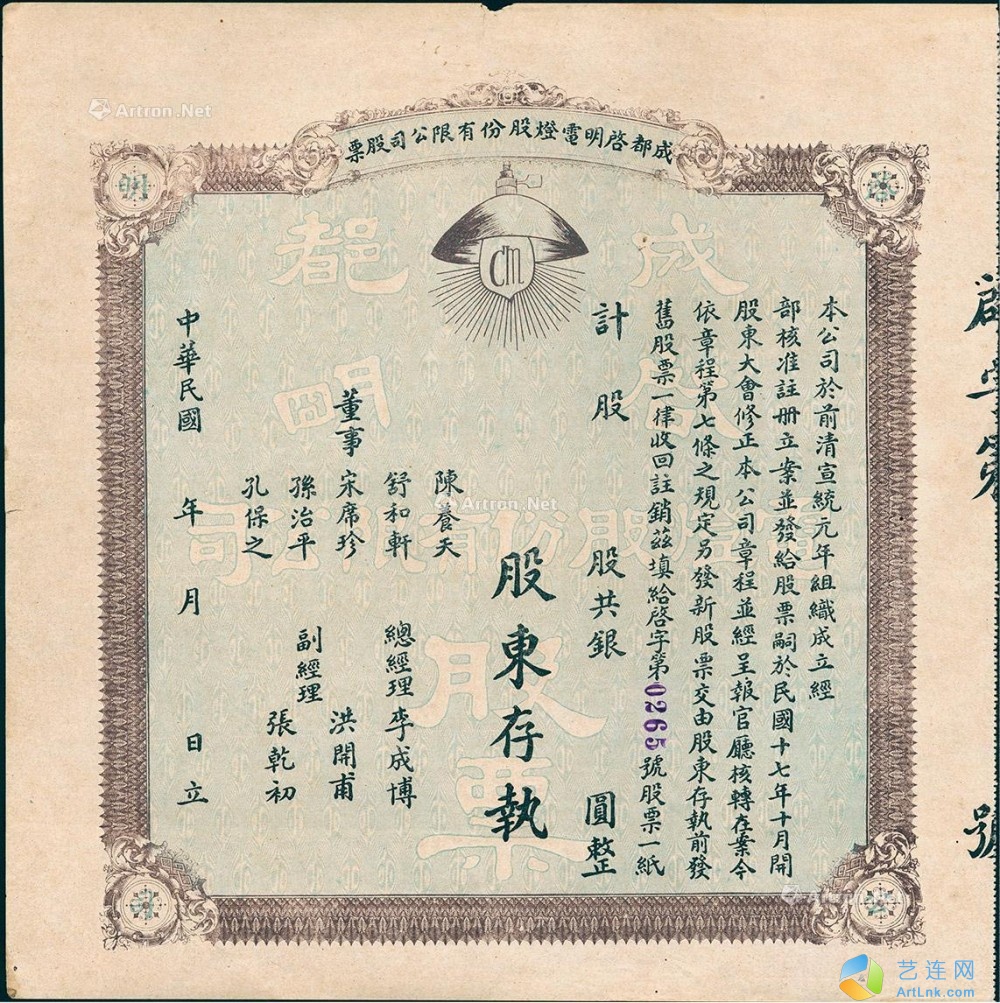 成都啓明電燈股份有限公司股票
CM
成都
啟明
電燈股份有限公司
股票
本公司於前清宣統元年組織成立經
部核准註册立案並發給股票嗣於民國十七年十月開
股東大會修正本公司章程並經呈報官廳核轉在案今
依章程第七條之規定另發新股票交由股東存執前發
舊股票一律收回註銷茲填給啓字第0265號股票一紙
計 股 股共銀 圓整
股東存執
董事
陳養天
舒和軒
宋席珍
孫治平
孔保之
總經理 李成博
副經理
洪開甫
張乾初
中華民國 年 月 日立
號
Artron.Net
Artron.Net
艺连网
ArtLnk.com